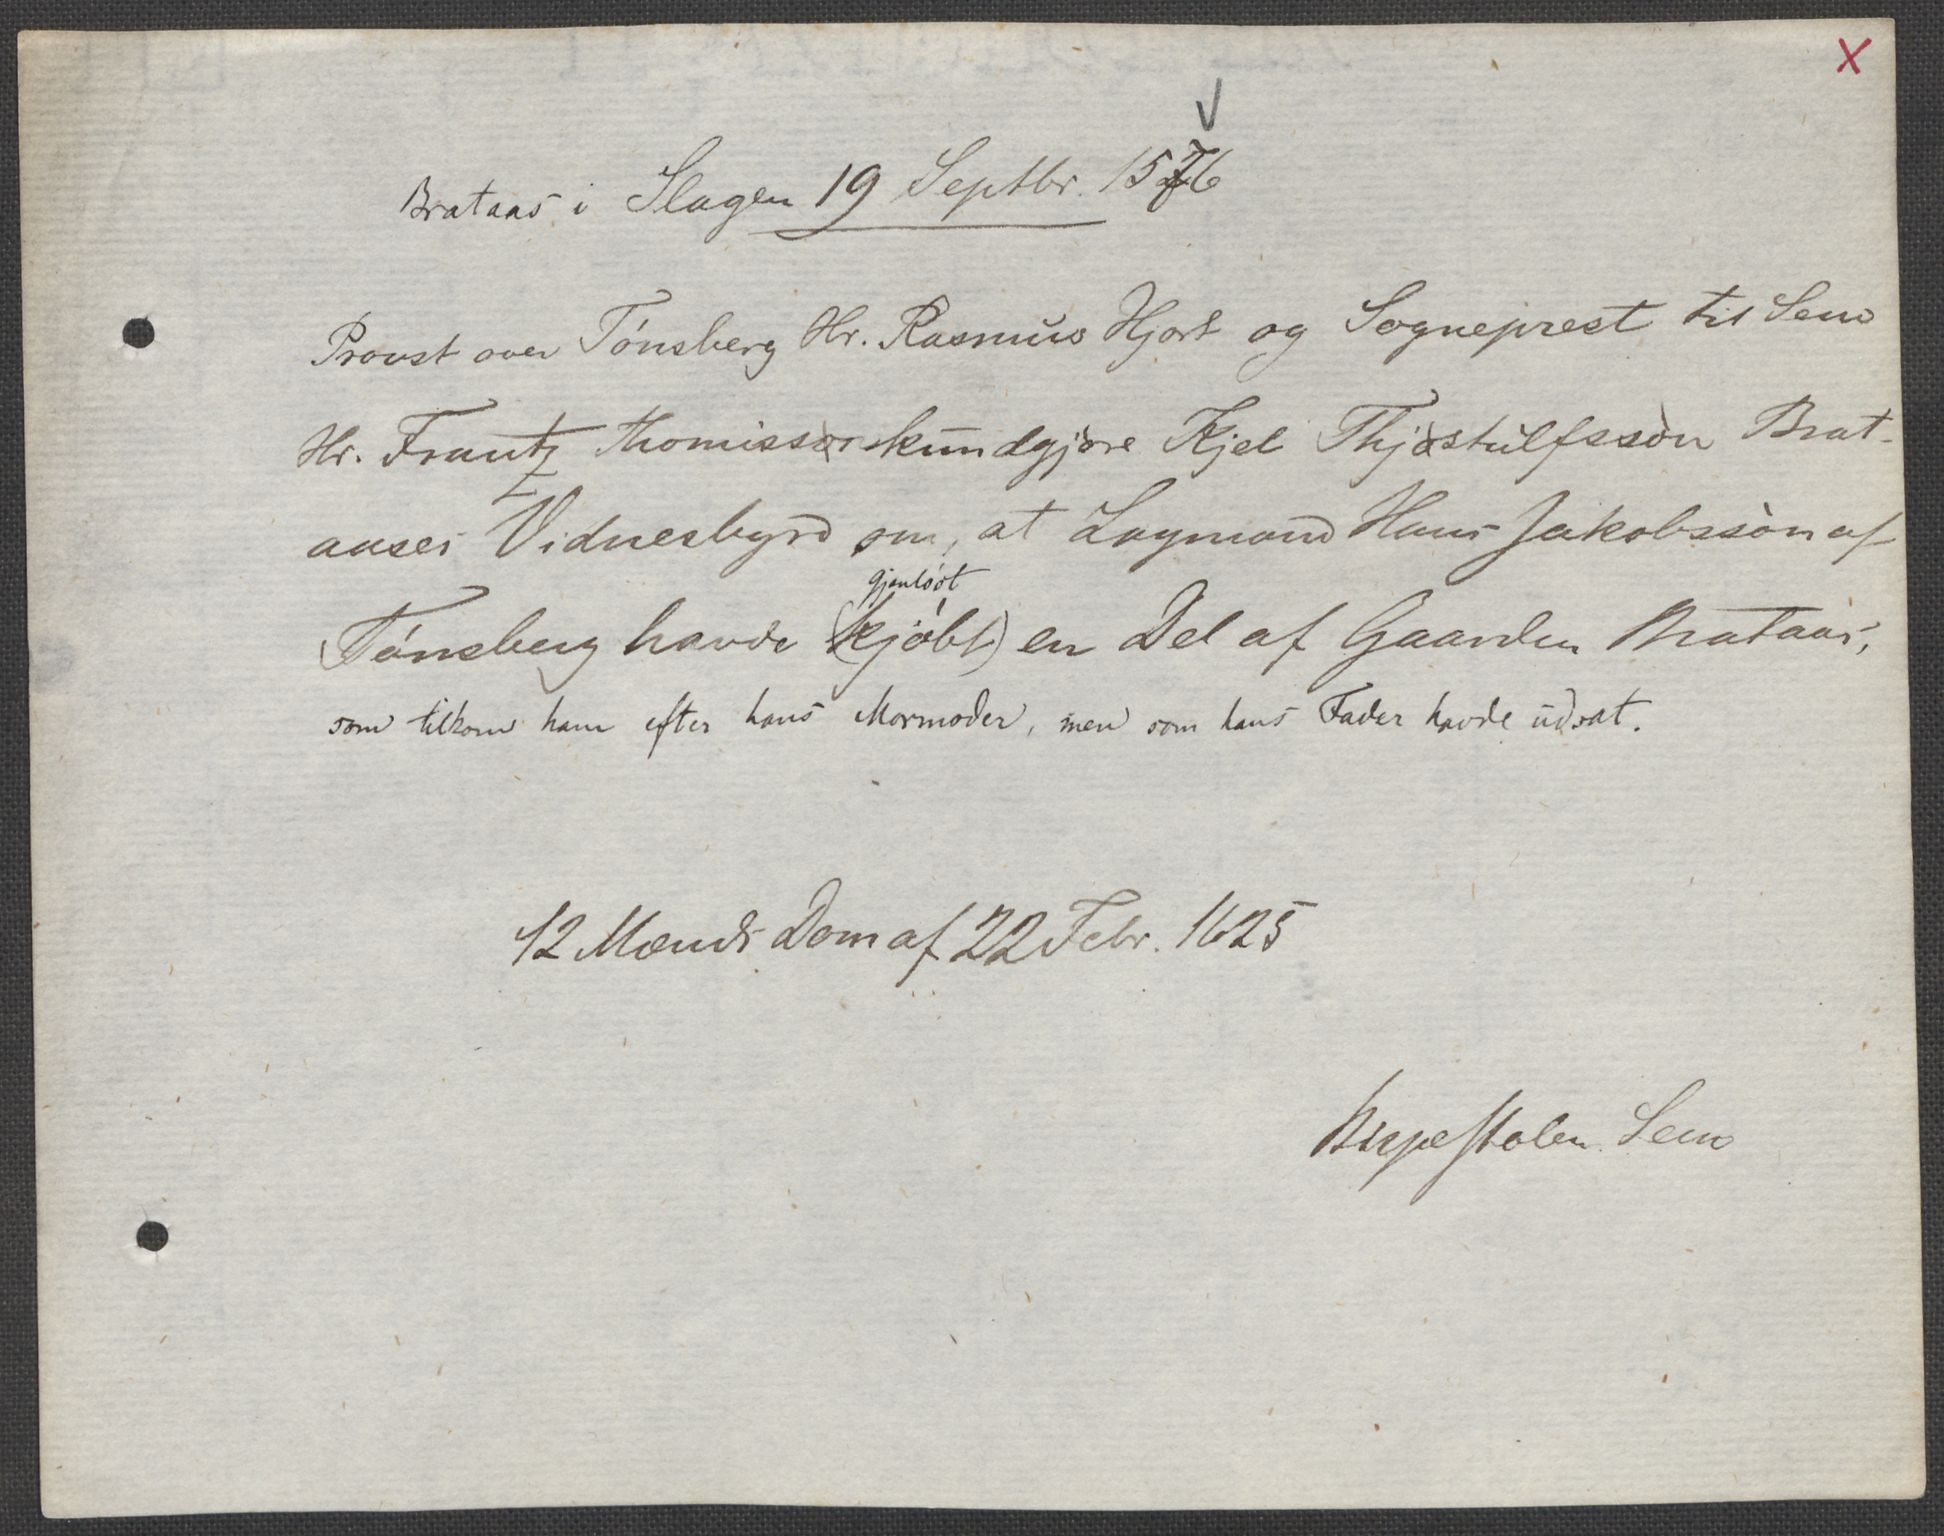 X
Brataas i Slagen 19 Septbr. 1576
Provst over Tønsberg Hr. Rasmus Hjort og Sogneprest til Sem
Hr. Frantz Thomissøn kundgjøre Kjel Thjøstulfssøn Brat-
aases Vidnesbyrd om, at Lagmand Hans Jakobssøn af
gjenløst
Tønsberg havde (kjøbt) en Del af Gaarden Brataas,
som tilkom ham efter hans Mormoder, men som hans Fader havde udsat.
12 Mænds Dom af 22 Febr. 1625
Sem